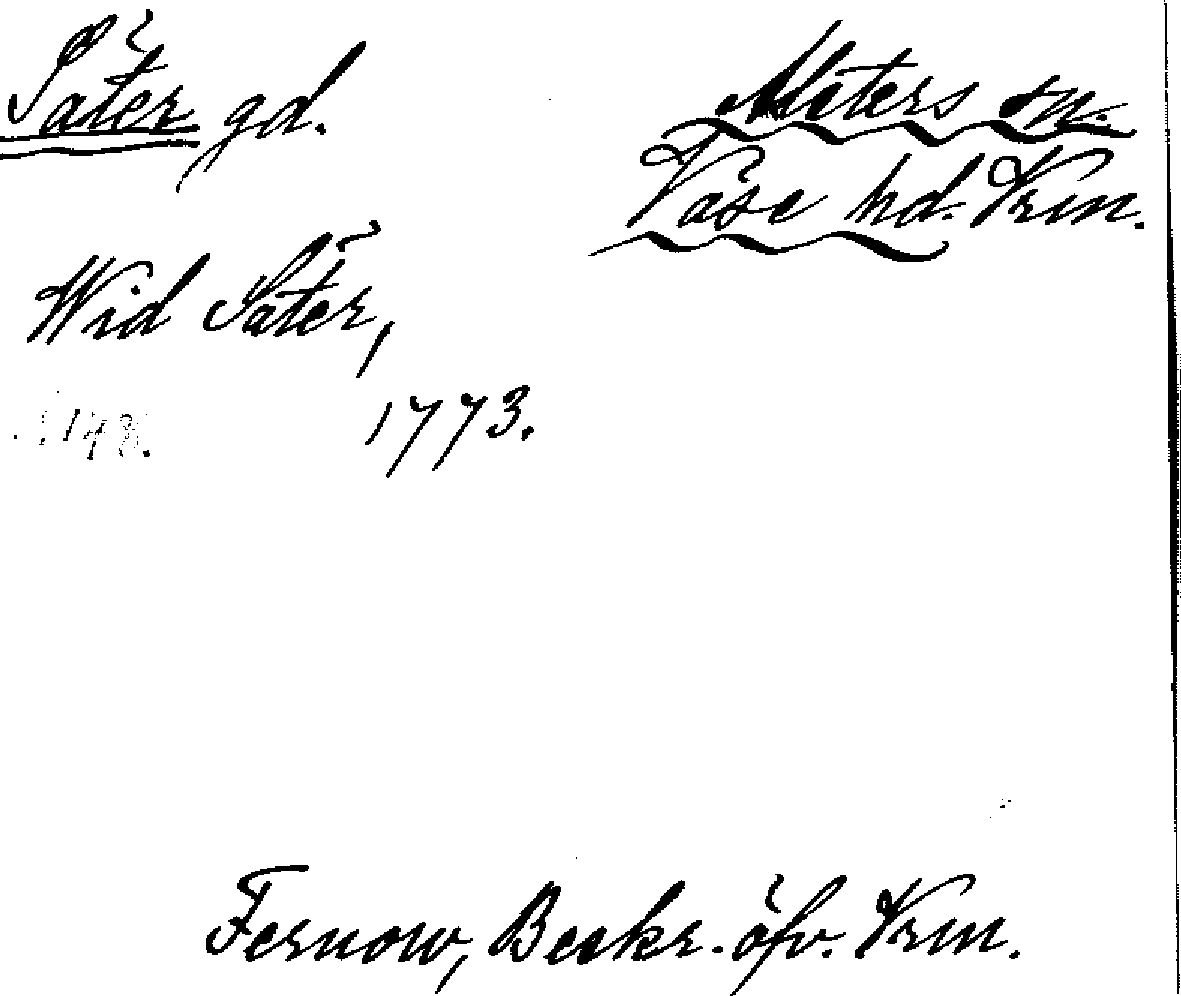 Säter gd.
Alsters sn.
Väse hd. Vrm.
Wid Säter,
1773.
s. 148.
Fernow, Beskr. öfv. Vrm.